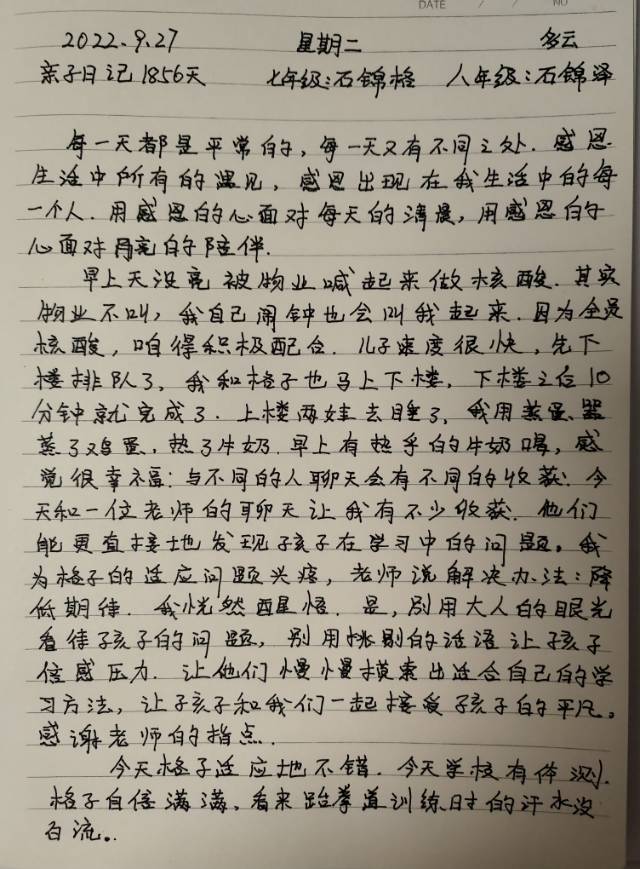 DATE / / NO
2022.9.27 星期二 多云
亲子日记1856天 七年级:石锦格 八年级:石锦泽
每一天都是平常的,每一天又有不同之处.感恩
生活中所有的遇见,感恩出现在我生活中的每
一个人.用感恩的心面对每天的清晨,用感恩的
心面对月亮的陪伴.
早上天没亮被物业喊起来做核酸.其实
物业不叫,我自己闹钟也会叫我起来.因为全员
核酸,咱得积极配合.儿子速度很快,先下
楼排队了,我和格子也马上下楼,下楼之后10
分钟就完成了.上楼两娃去睡了,我用蒸蛋器
蒸了鸡蛋,热了牛奶.早上有热乎的牛奶喝,感
觉很幸福:与不同的人聊天会有不同的收获.今
天和一位老师的聊天让我有不少收获.他们
能更直接地发现孩子在学习中的问题。我
为格子的适应问题头疼,老师说解决办法:降
低期待.我恍然醒悟.是,别用大人的眼光
看待孩子的问题,别用挑剔的话语让孩子
倍感压力.让他们慢慢摸索出适合自己的学
习方法,让孩子和我们一起接受孩子的平凡。
感谢老师的指点.
今天格子适应地不错.今天学校有体测.
格子自信满满,看来跆拳道训练时的汗水没
白流。.